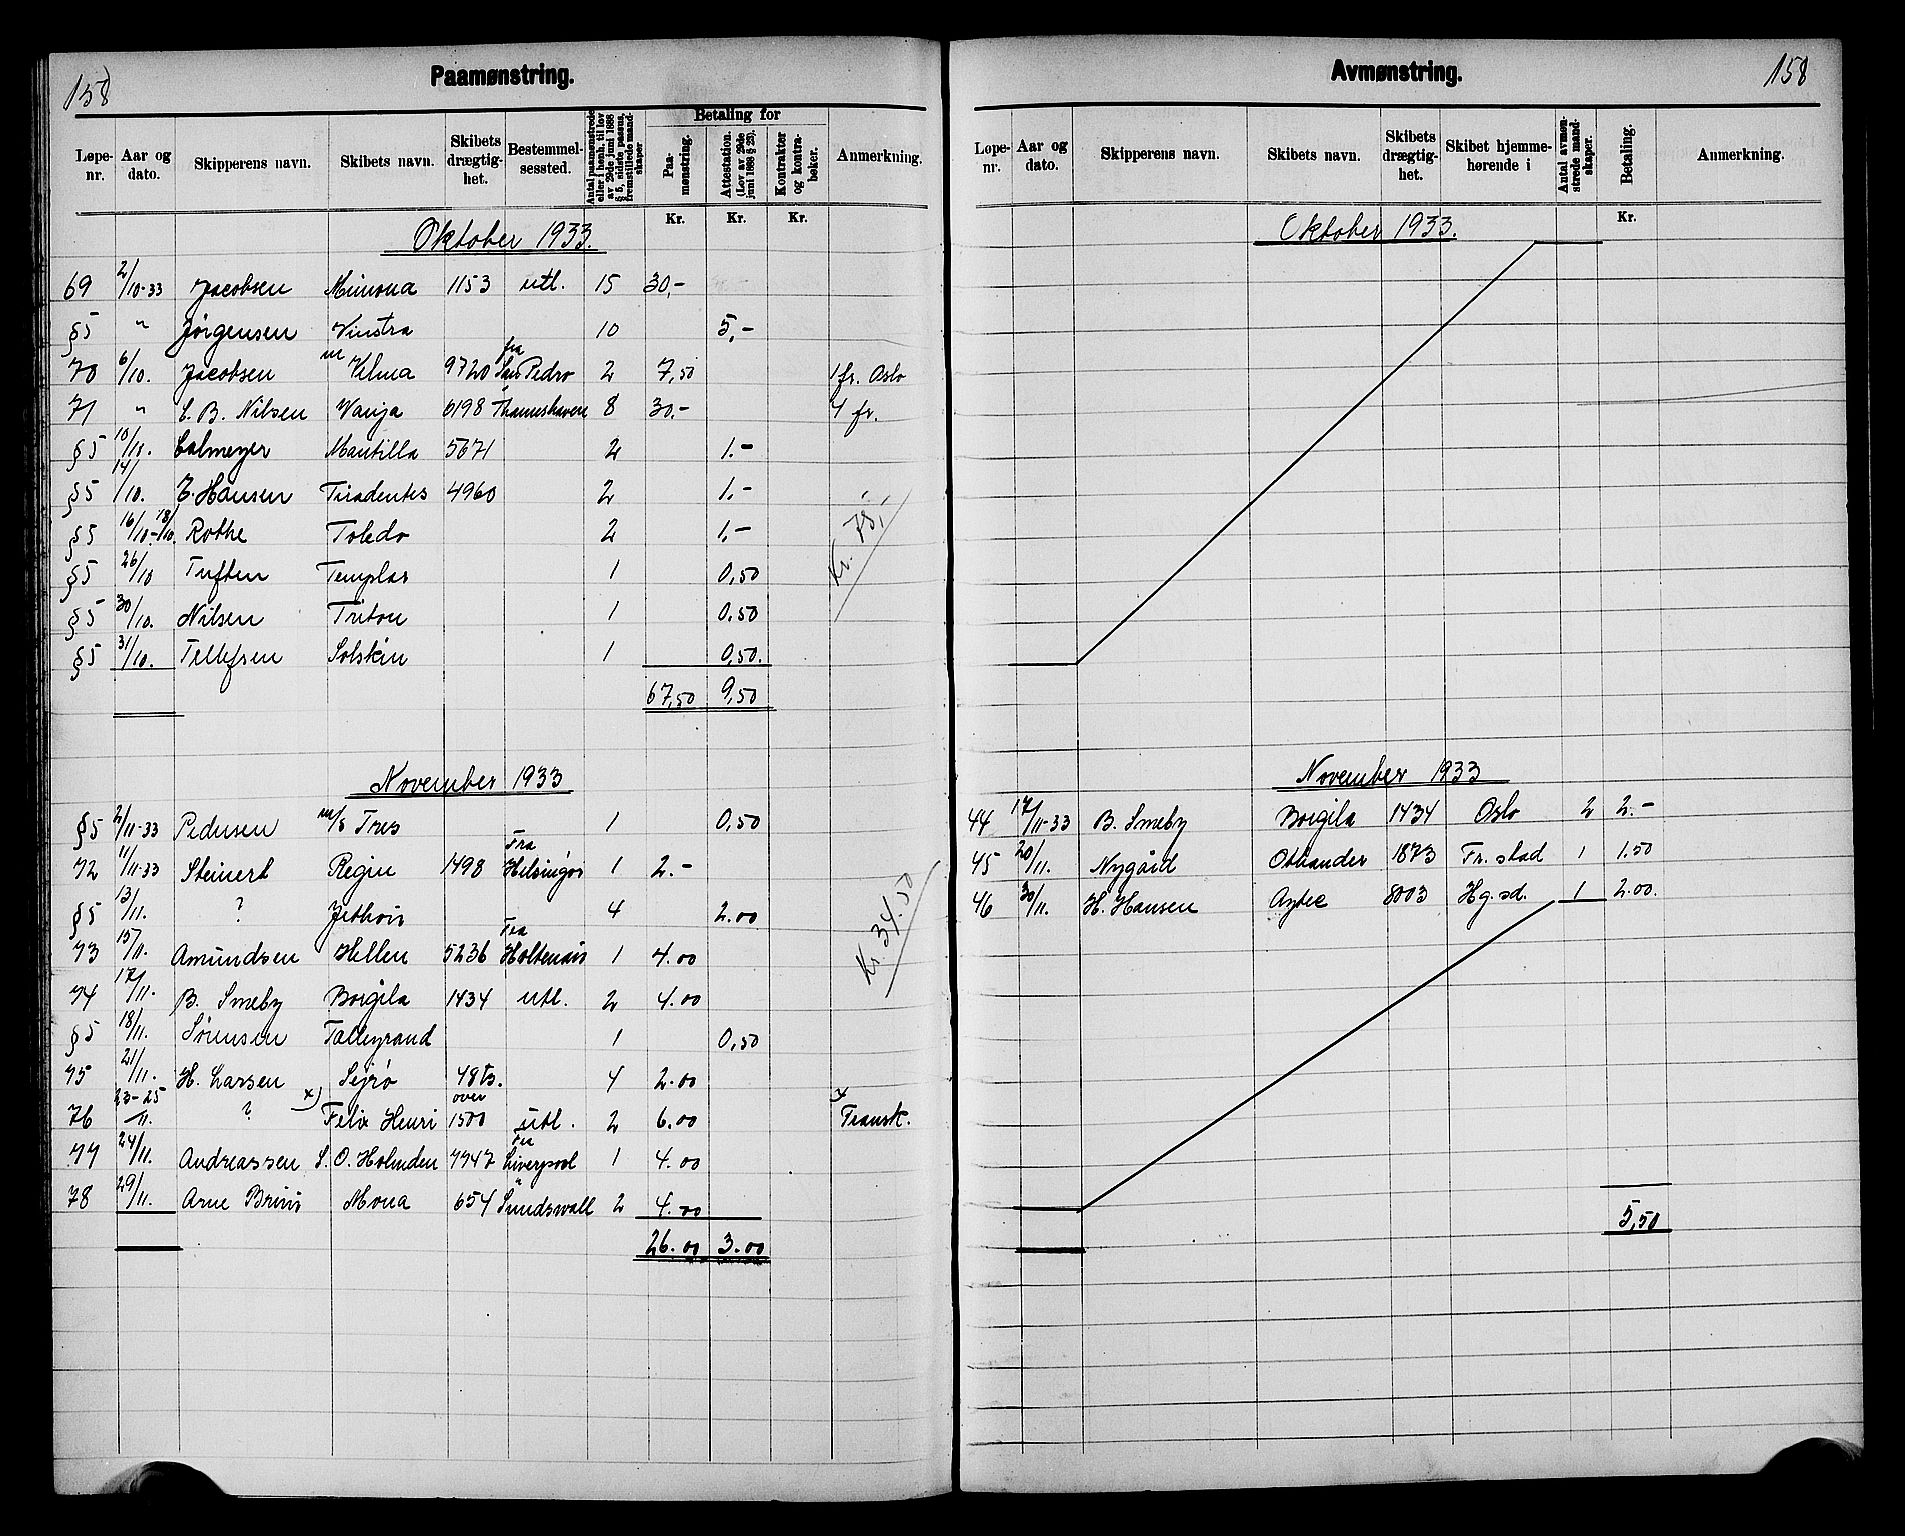 158
Paamønstring.
Løpe-nr. Aar og dato. Skipperens navn. Skibets navn. Skibets drægtig-het. Bestemmel-sessted. Antal paamønstrede eller i henh. til lov av 29de juni 1888 § 5, sidste passus, fremstillede mand-skaper Betaling for Paa-mønstring. Attestation. (Lov av 29de juni 1888 § 23). Kontrakter og kontra-bøker. Anmerkning.
Kr. Kr. Kr.
Oktober 1933.
69 2/10-33 Jacobsen Mimona 1153 utl. 15 30,-
§5 " Jørgensen Vinstra 10 5,-
70 6/10. Jacobsen m Velma 9720 fra San Pedro 2 7,50 1 fr. Oslo
71 " C. B. Nilsen Vanja 6198 " Thamshavn 8 30.- 4 fr.
§5 10/10. Calmeyer Mantilla 5671 2 1.-
§5 14/10. E. Hansen Tiradentes 4960 2 1.-
§5 16/10-18/10. Rothe Toledo 2 1,-
§5 26/10 Tuften Templar 1 0,50
§5 30/10. Nilsen Triton 1 0.50
§5 31/10. Tellefsen Solskin 1 0,50.
Kr. 75,-
67,50 9,50
November 1933
§5 2/11-33 Pedersen m/s Tres 1 0,50
72 11/11-33 Steinert Regin 1498 Fra Helsingør 1 2.-
§5 13/11. ? Jethvis 4 2.00
73 15/11. Amundsen Hellen 5236 Fra Holtenau 1 4.00
74 17/11. B. Smeby Borgila 1434 utl. 2 4.00
§5 18/11. Sørensen Talleyrand 1 0,50
75 21/11. H. Larsen Sejrø 48 4 2.00
76 23-25/11. ? x) Felix Henri over 1500 utl. 2 6.00 x Fransk.
77 24/11. Andreassen S. O. Holmden 7747 Fra Liverpool 1 4.00
78 29/11. Arne Mona 654 " Sundswall 2 4.00
Kr. 34.50
26.00 3.00
158
Avmønstring.
Løpe-nr. Aar og dato. Skipperens navn. Skibets navn. Skibets drægtig-het. Skibet hjemme-hørende i Antal avmøn-strede mand-skaper. Betaling. Anmerkning.
Kr.
Oktober 1933.
November 1933
44 17/11-33 B. Smeby Borgila 1434 Oslo 2 2.-
45 20/11. Nygård Othander 1873 Fr.stad 1 1.50
46 30/11. H. Hansen Aztec 8003 Hg.sd. 1 2.00.
5,50